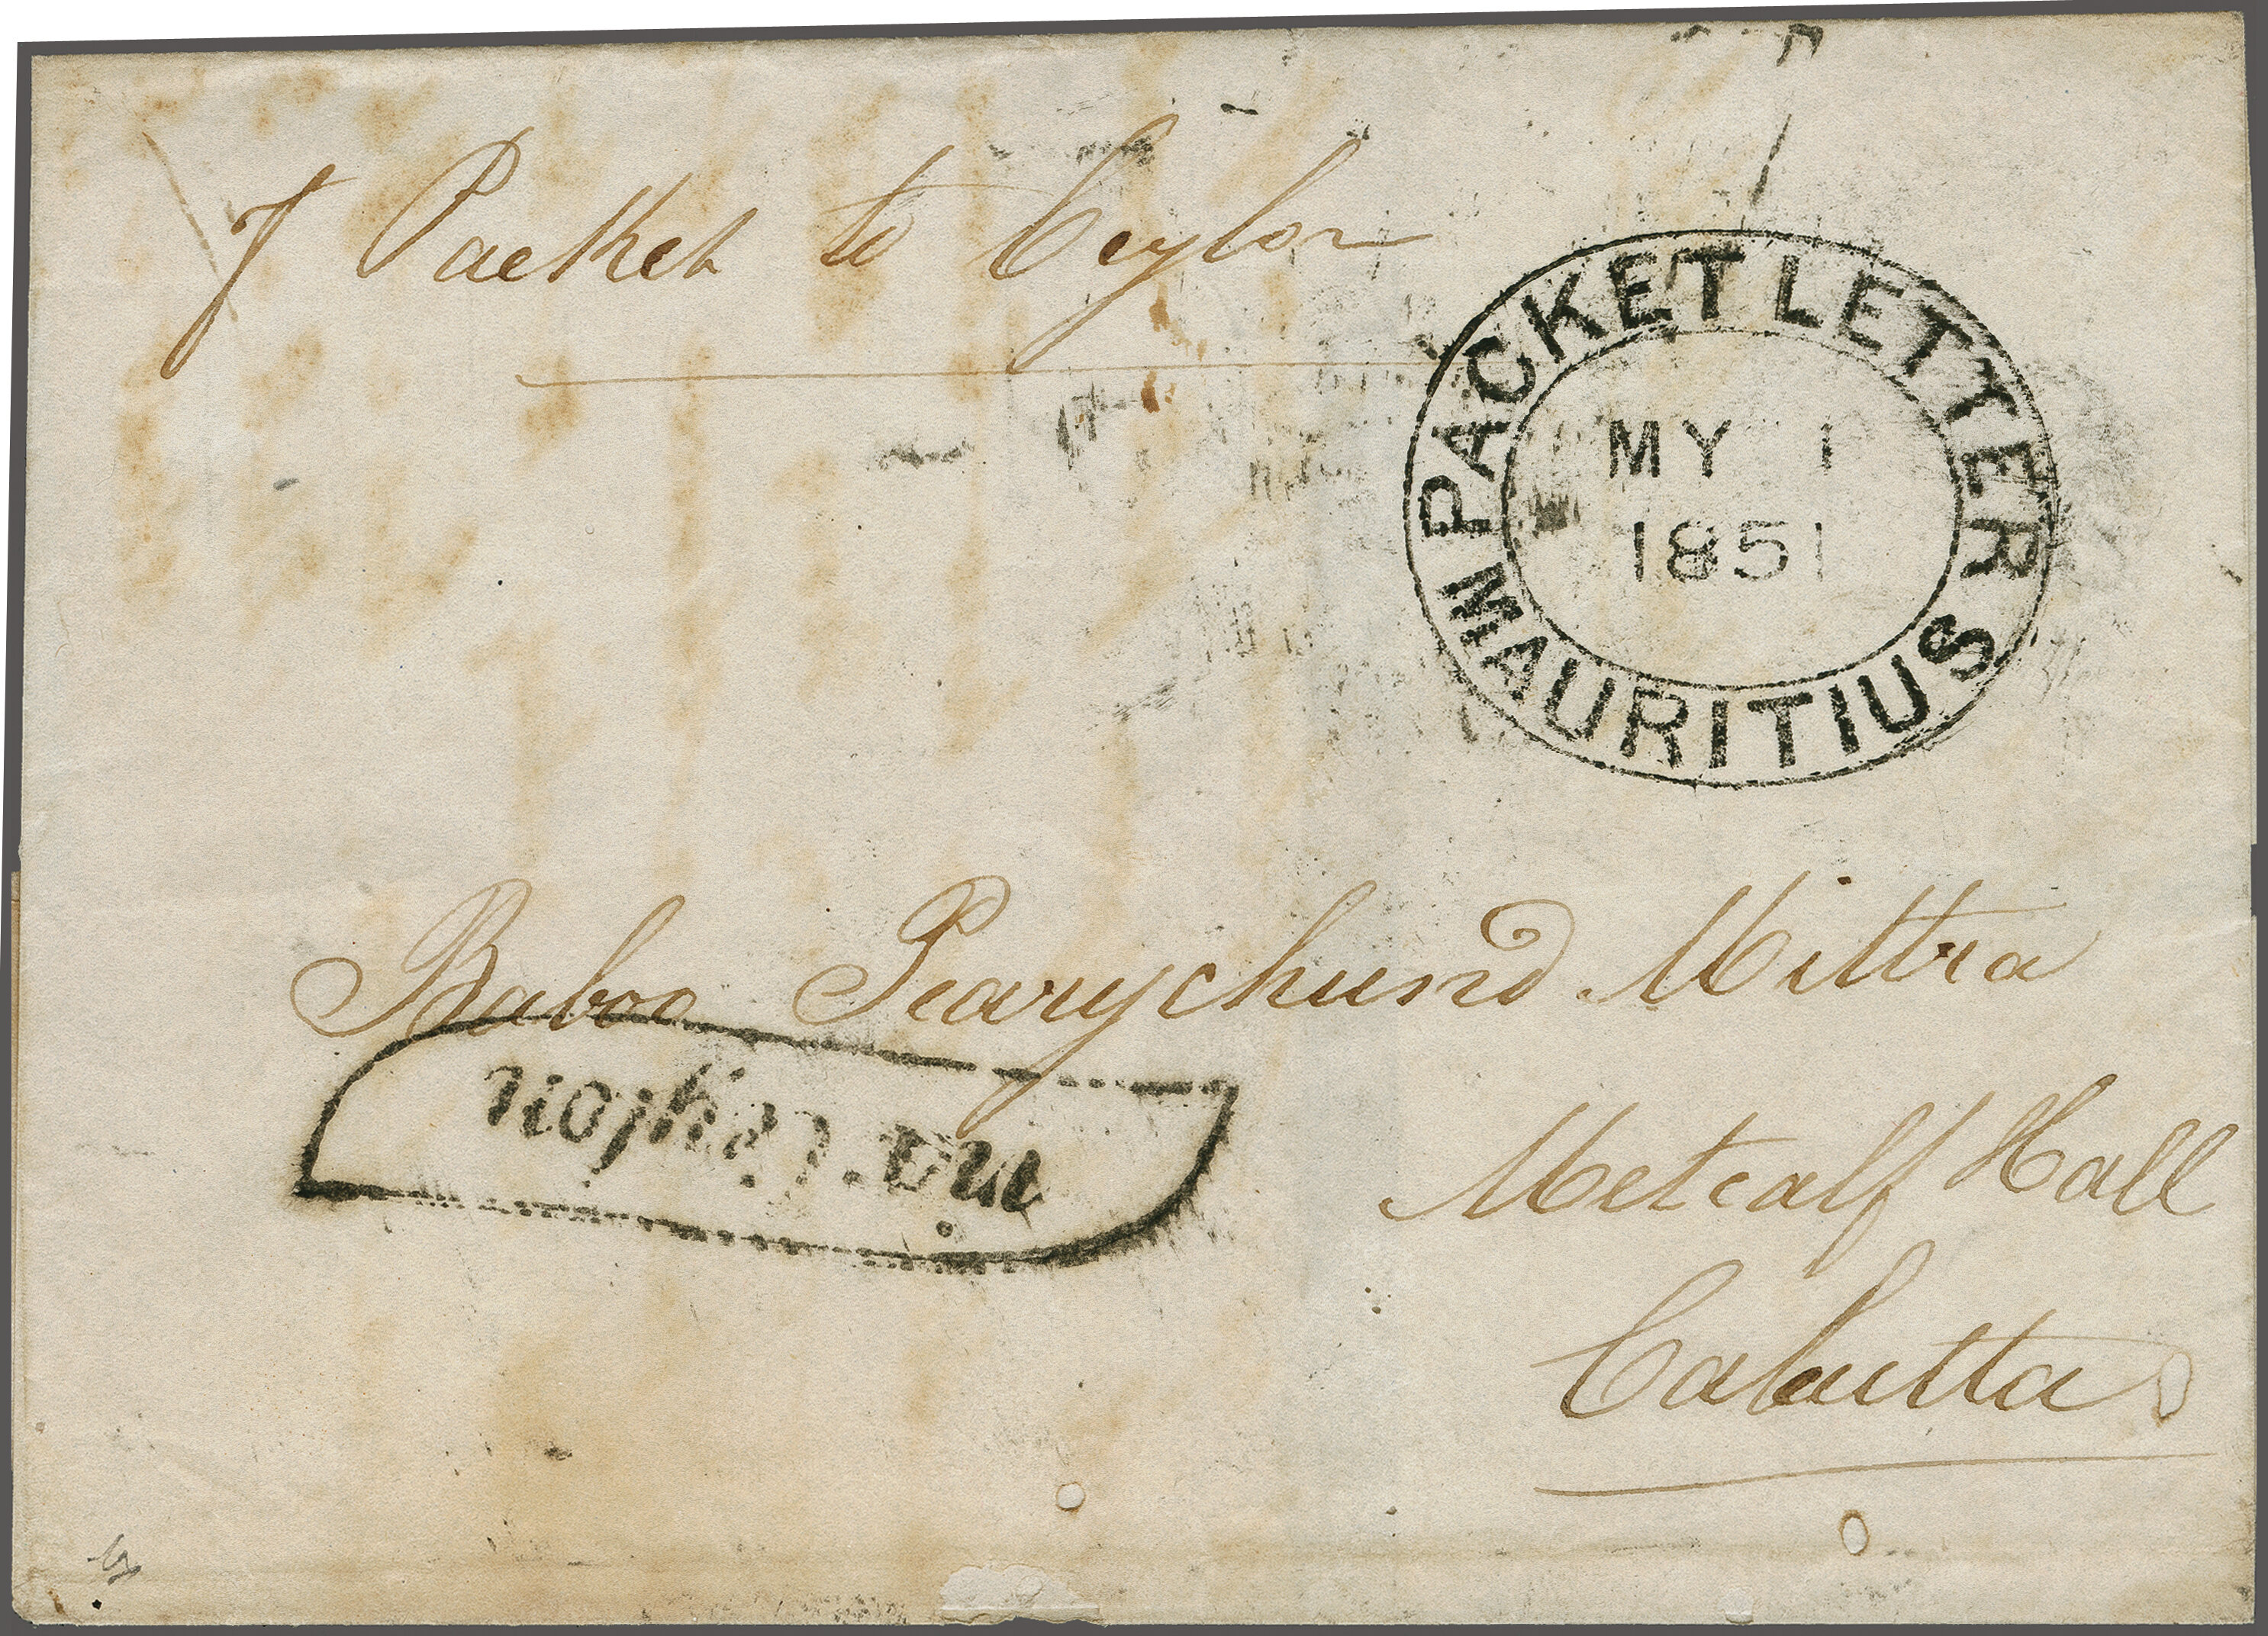 P Packet to Ceylon
PACKET LETTER
MY 1
1851
MAURITIUS
Baboo Pearychund Mittra
via Ceylon
Metcalf Hall
Calcutta